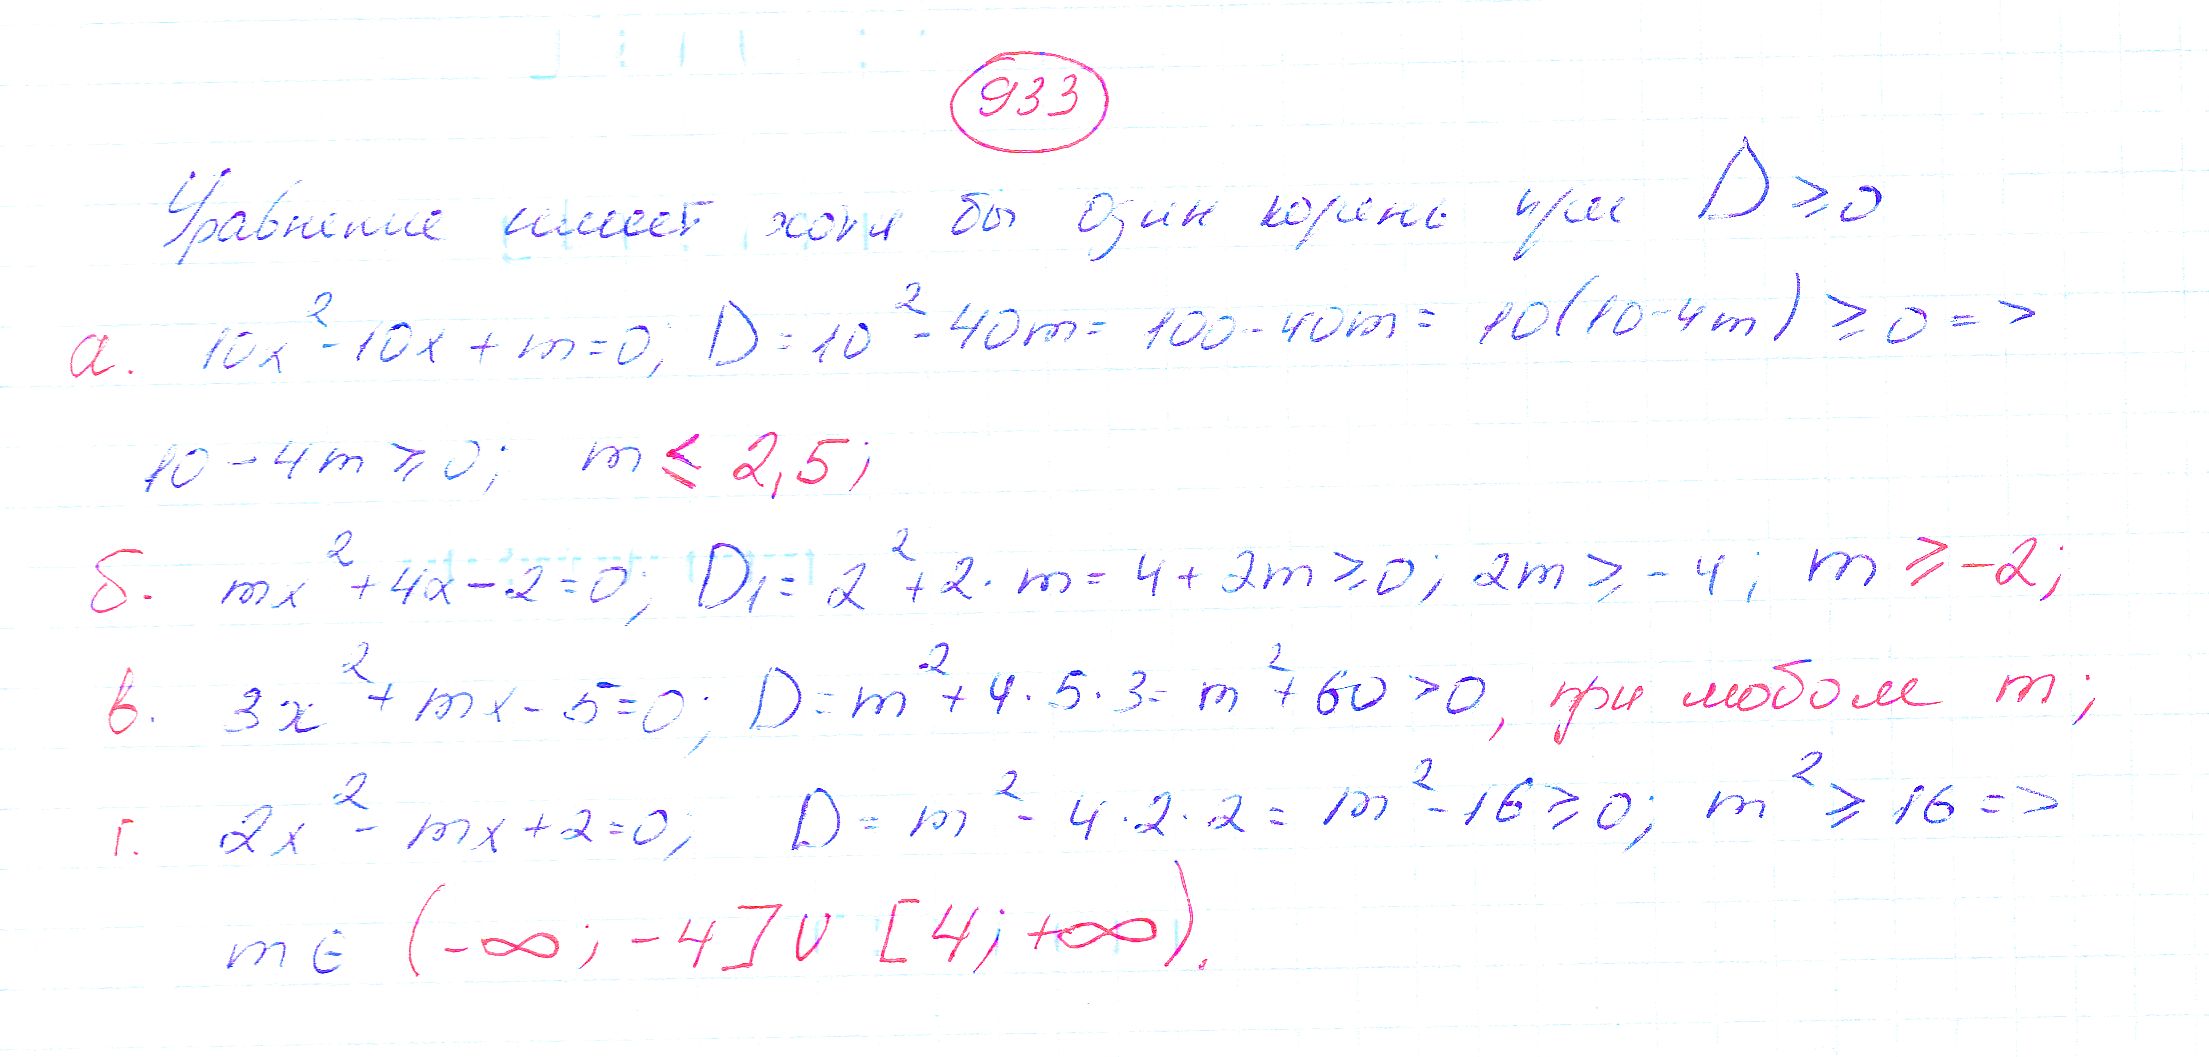 933
Уравнение имеет хотя бы один корень при D ≥ 0
а. 10x² - 10x + m = 0; D = 10² - 40m = 100 - 40m = 10(10 - 4m) ≥ 0 =>
10 - 4m ≥ 0; m ≤ 2,5;
б. mx² + 4x - 2 = 0; D₁ = 2² + 2 · m = 4 + 2m ≥ 0; 2m ≥ -4; m ≥ -2;
в. 3x² + mx - 5 = 0; D = m² + 4 · 5 · 3 = m² + 60 > 0, при любом m;
г. 2x² - mx + 2 = 0; D = m² - 4 · 2 · 2 = m² - 16 ≥ 0; m² ≥ 16 =>
m ∈ (-∞; -4] ∪ [4; +∞).